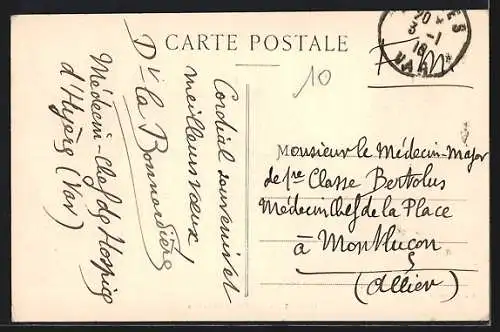 CARTE POSTALE
20
3 -1
16
VAR
F M
10
Cordial souvenir et
meilleurs vœux
Dr la Bonnardière
Médecin-Chef de Hospice
d'Hyères (Var)
Monsieur le Médecin-Major
de 1re Classe Bertolus
Médecin Chef de la Place
à Montluçon
(Allier)